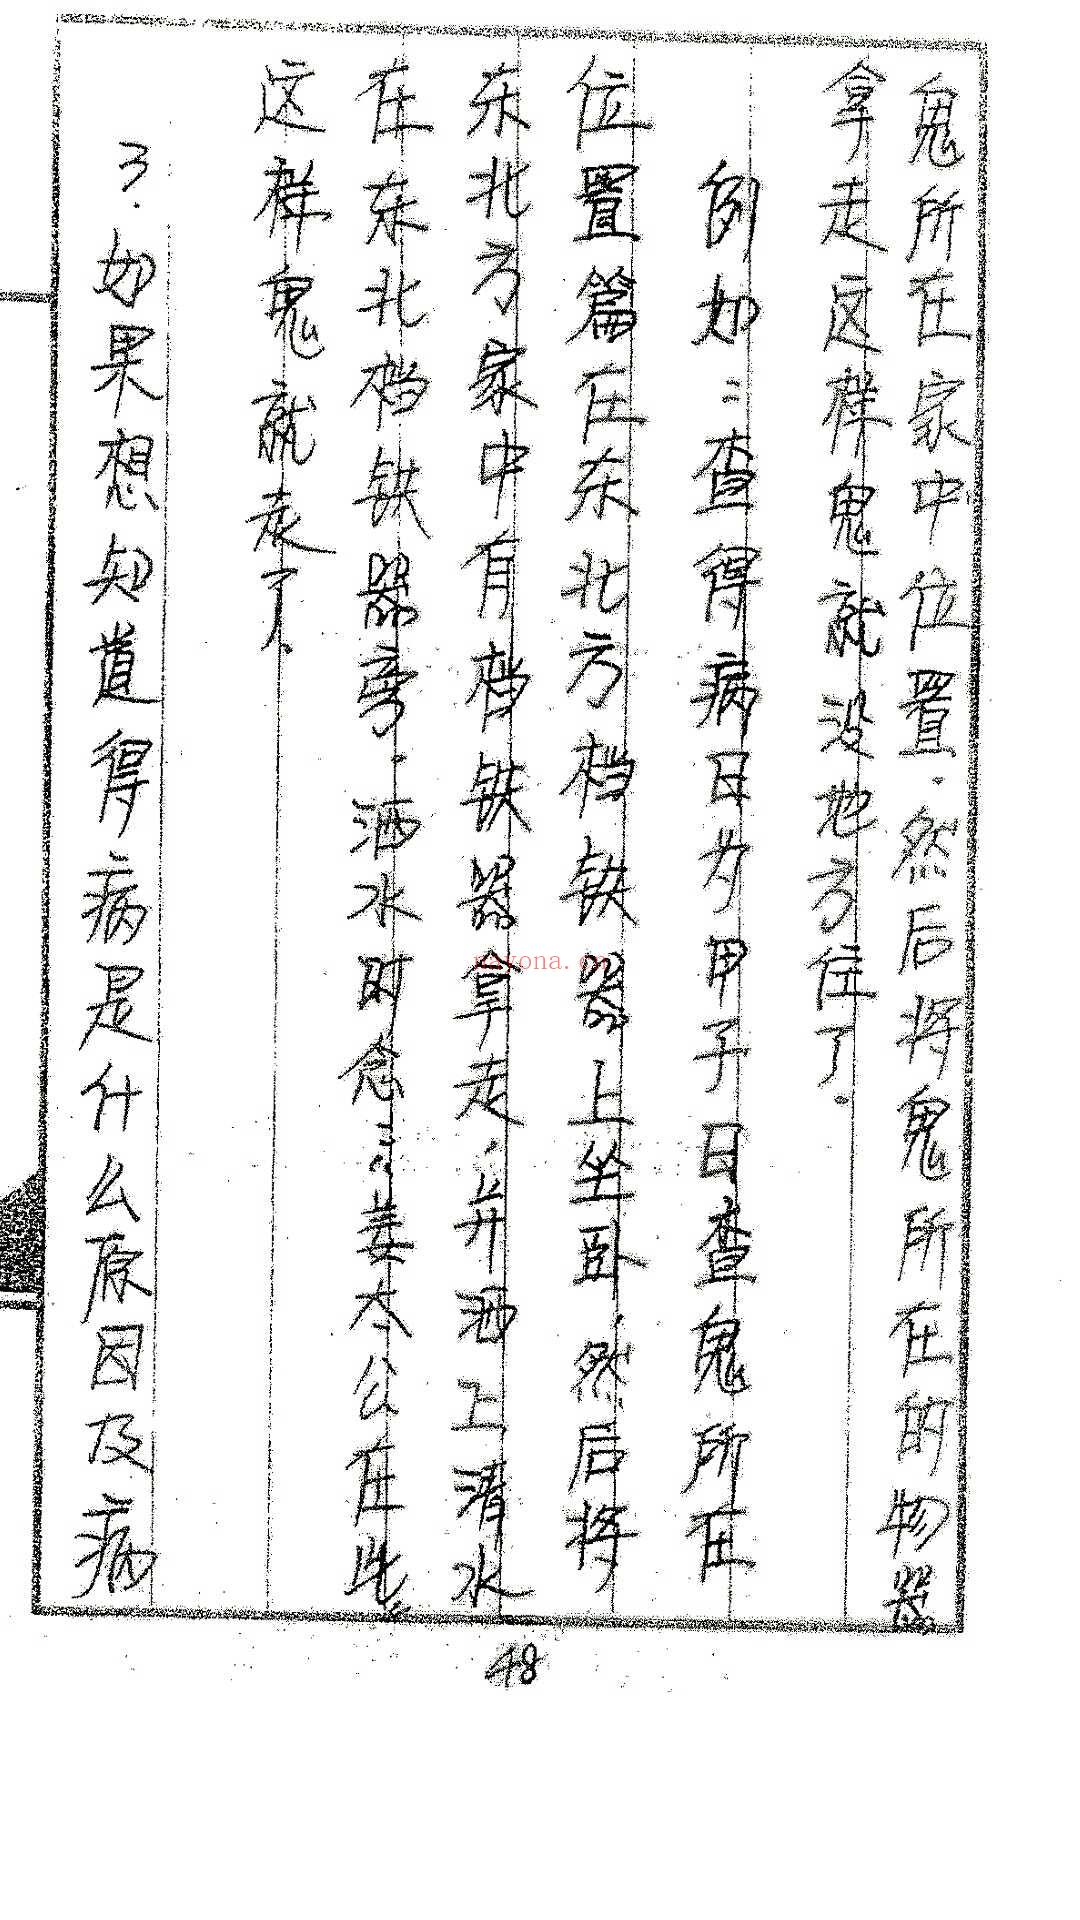 鬼所在家中位置.然后将鬼所在的物器
拿走这样鬼就没地方住了.
例如:查得病日为甲子日查鬼所在
位置篇在东北方档铁器上坐卧.然后将
东北方家中有档铁器拿走,并洒上清水
在东北档铁器旁.洒水时念:姜太公在此
这样鬼就走了.
3.如果想知道得病是什么原因及病
48
nayona.cn